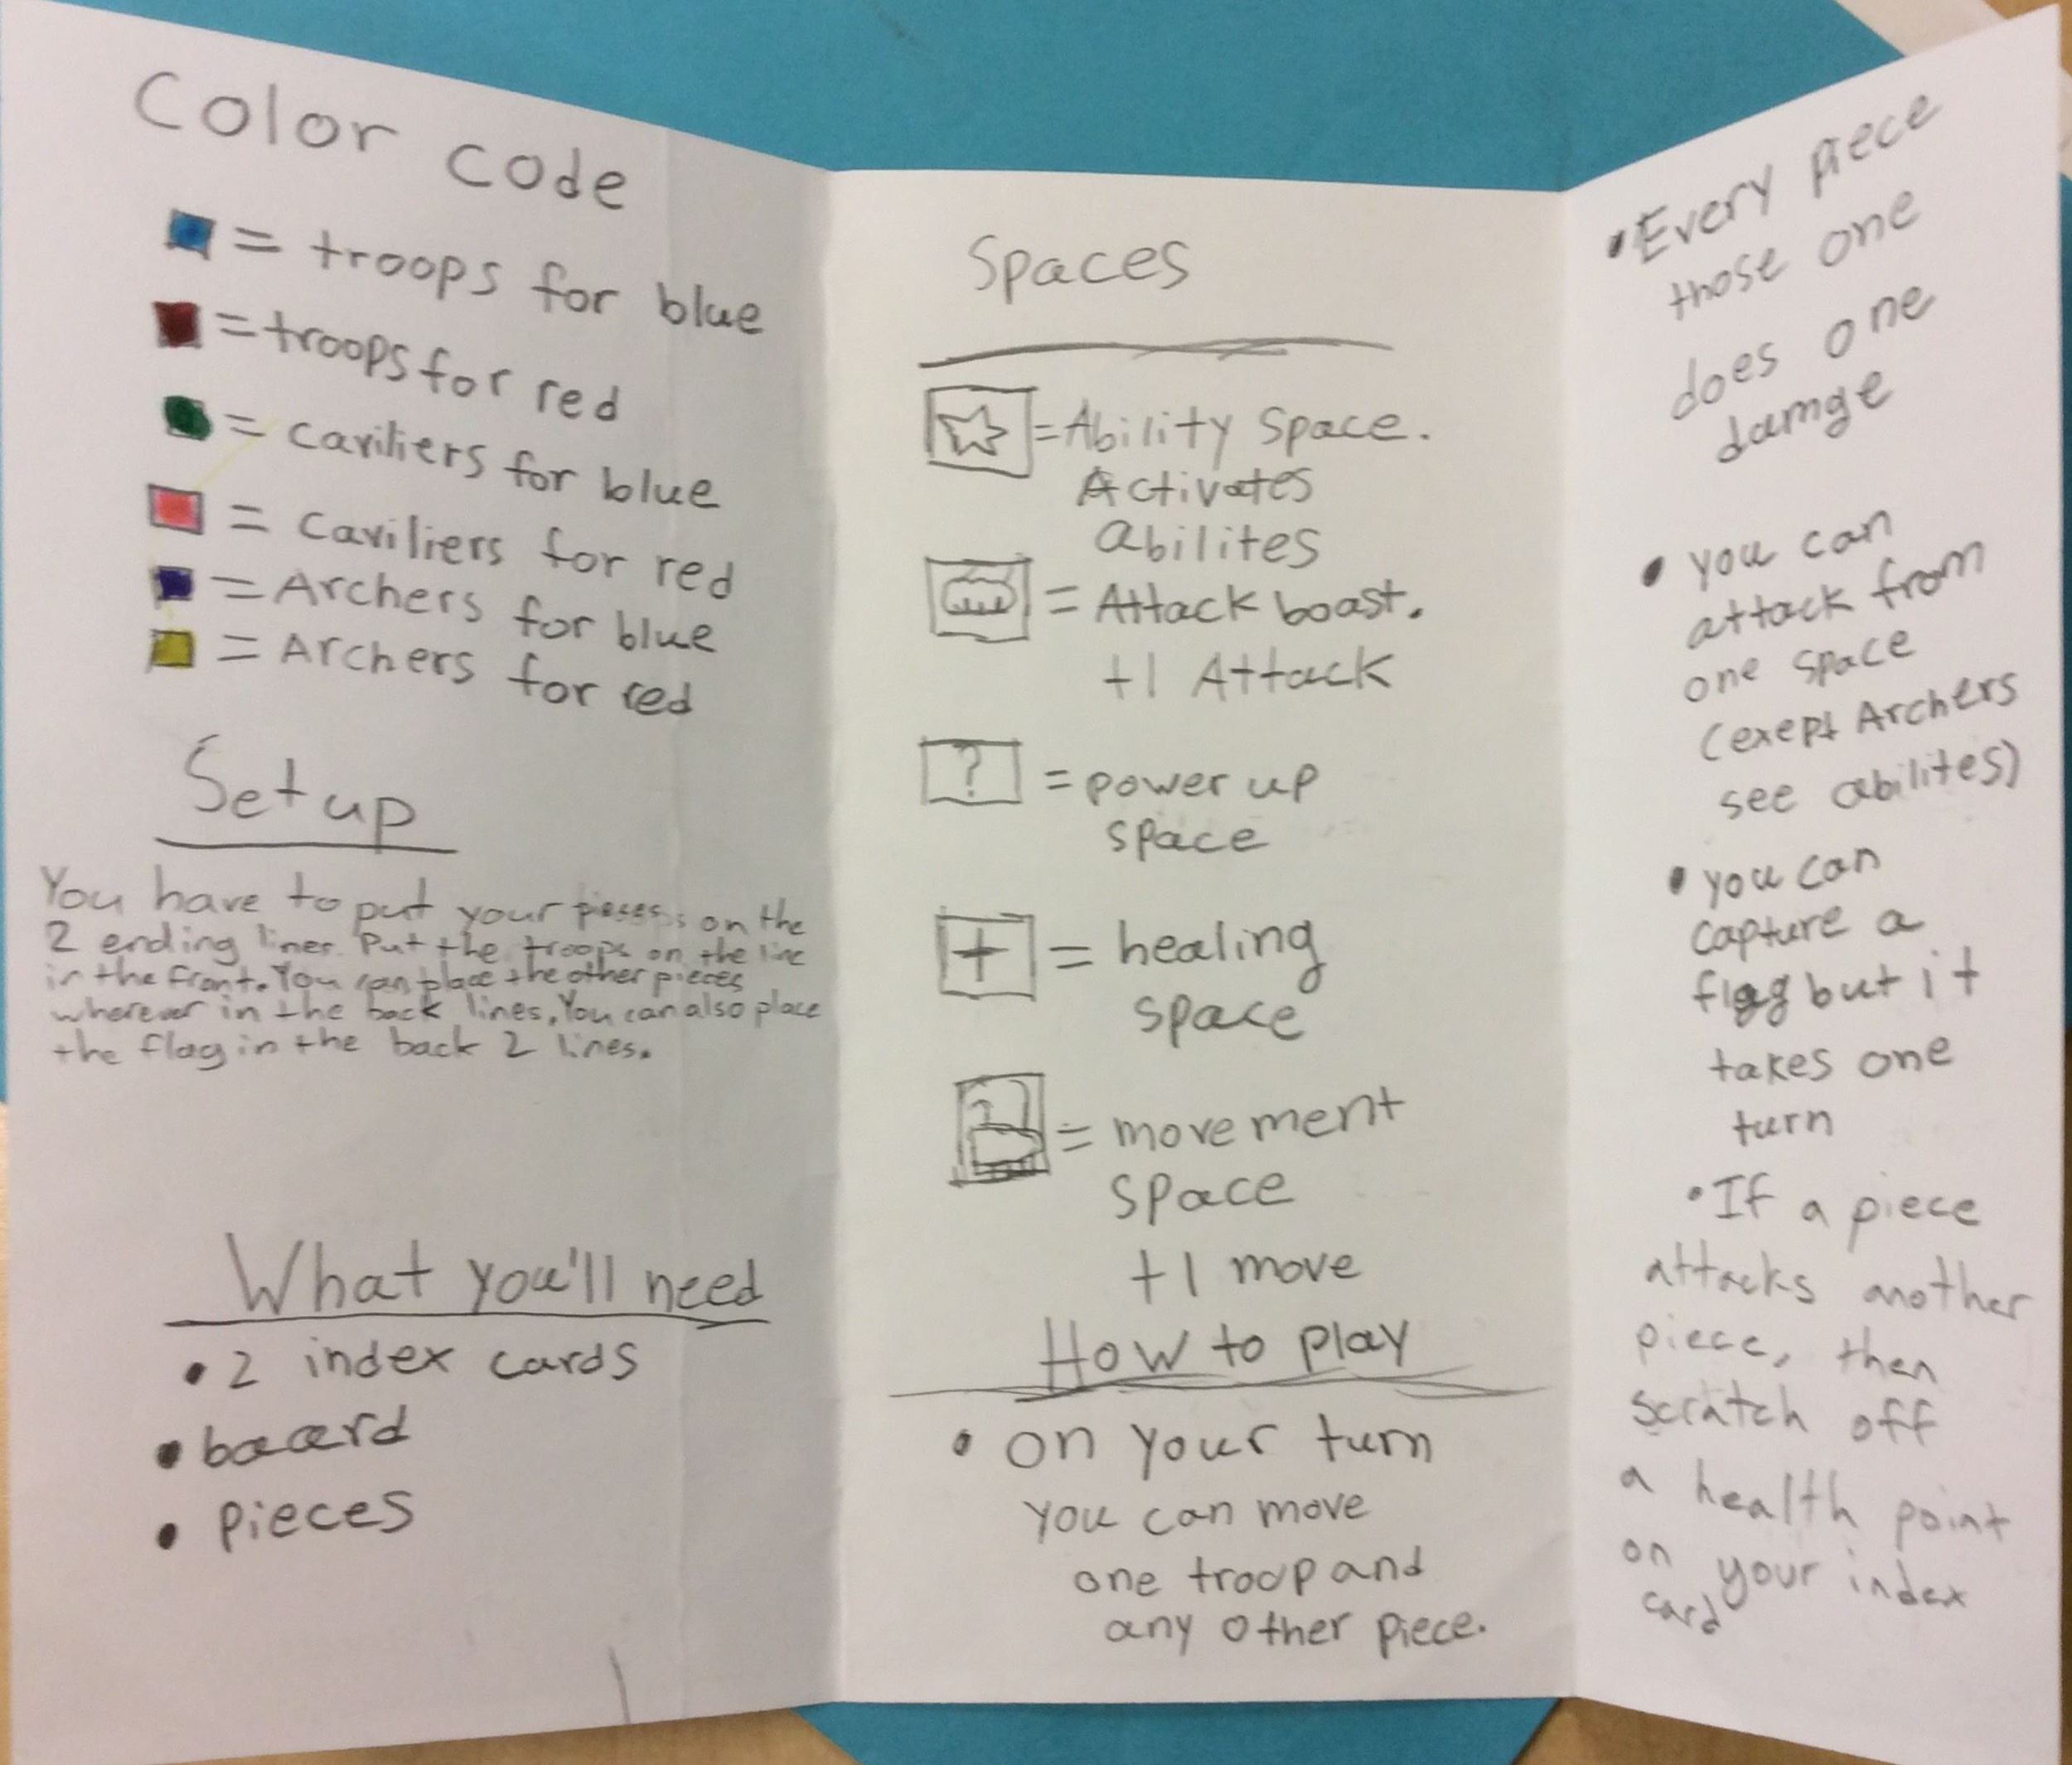 Color code
= troops for blue
= troops for red
= caviliers for blue
= caviliers for red
= Archers for blue
= Archers for red
Set up
You have to put your pieses on the
2 ending lines. Put the troops on the line
in the front. You can place the other pieces
wherever in the back lines. You can also place
the flag in the back 2 lines.
What you'll need
• 2 index cards
• boaard
• pieces
Spaces
= Ability Space.
Activates
abilites
= Attack boast.
+1 Attack
? = power up
space
+ = healing
space
= movement
space
+1 move
How to play
• on your turn
you can move
one troop and
any other piece.
• Every piece
those one
does one
damge
• you can
attack from
one space
(exept Archers
see abilites)
• you can
capture a
flag but it
takes one
turn
• If a piece
attacks another
piece, then
scratch off
a health point
on your index
card